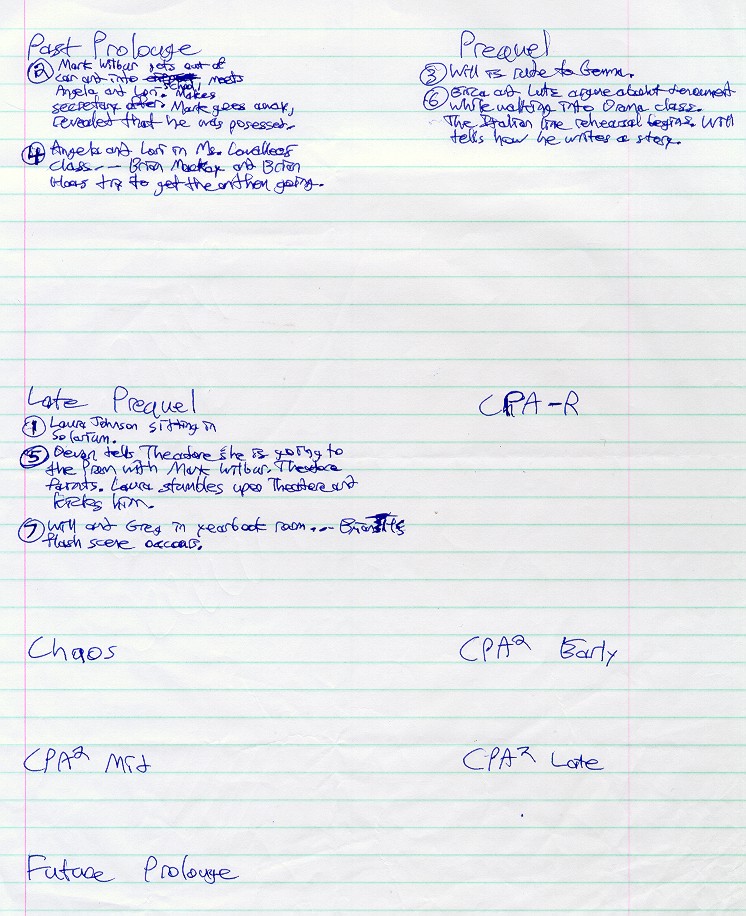 Past Prolouge
② Mark Wilbur gets out of
car and into school, meets
Angela and Lori. Makes
secretary Mark goes away,
revealed that he was posessed.
④ Angela and Lori in Ms. Lavallees
class --- Brian Mackay and Brian
Haas try to get the anthem going.
Prequel
③ Will is rude to Gemma.
⑥ Erica and Luke argue about
while walking into Drama class.
The Italian line rehearsal begins. Will
tells how he writes a story.
Late Prequel
① Laura Johnson sitting in
solarium.
⑤ Devon tells Theodore she is going to
the Prom with Mark Wilbur. Theodore
faints. Laura stumbles upon Theodore and
kicks him.
⑦ Will and Greg in yearbook room ---
flash scene occurs.
CPA-R
Chaos
CPA² Early
CPA² Mid
CPA² Late
Future Prolouge